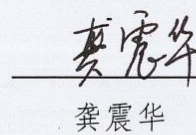 龚震华
龚震华